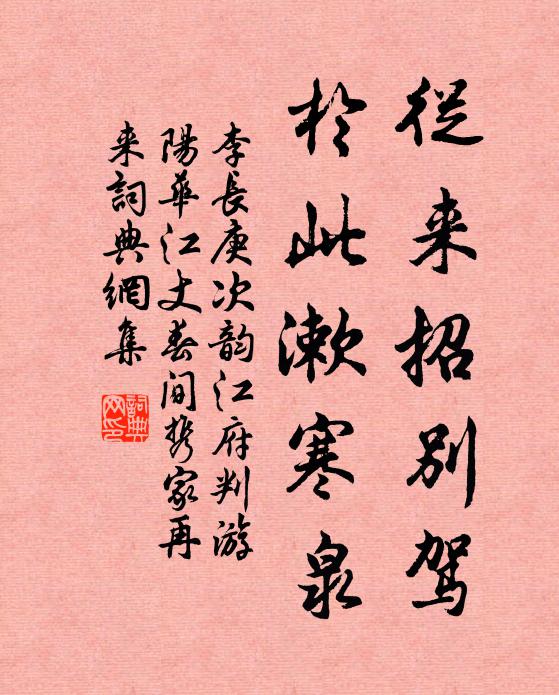 從来招别駕
於此漱寒泉
李長庚次韵江府判游
陽華江丈春间携家再
来詞典網集
詞典网印